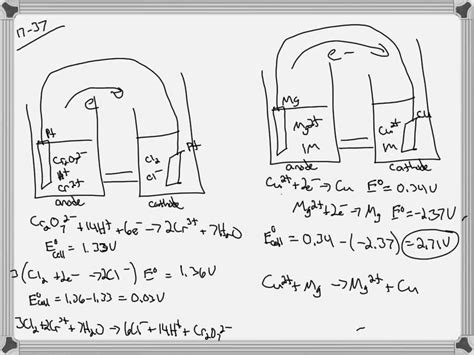 17-37
e-
Pt
Pt
Cr₂O₇²⁻
H⁺
Cr³⁺
Cl₂
Cl⁻
anode
cathode
Cr₂O₇²⁻ + 14H⁺ + 6e⁻ → 2Cr³⁺ + 7H₂O
E°cell = 1.33V
3(Cl₂ + 2e⁻ → 2Cl⁻) E° = 1.36V
E°cell = 1.36 - 1.33 = 0.03V
3Cl₂ + 2Cr³⁺ + 7H₂O → 6Cl⁻ + 14H⁺ + Cr₂O₇²⁻
e-
Mg
Cu
Mg²⁺
1M
Cu²⁺
1M
anode
cathode
Cu²⁺ + 2e⁻ → Cu E° = 0.34V
Mg²⁺ + 2e⁻ → Mg E° = -2.37V
E°cell = 0.34 - (-2.37) = 2.71V
Cu²⁺ + Mg → Mg²⁺ + Cu